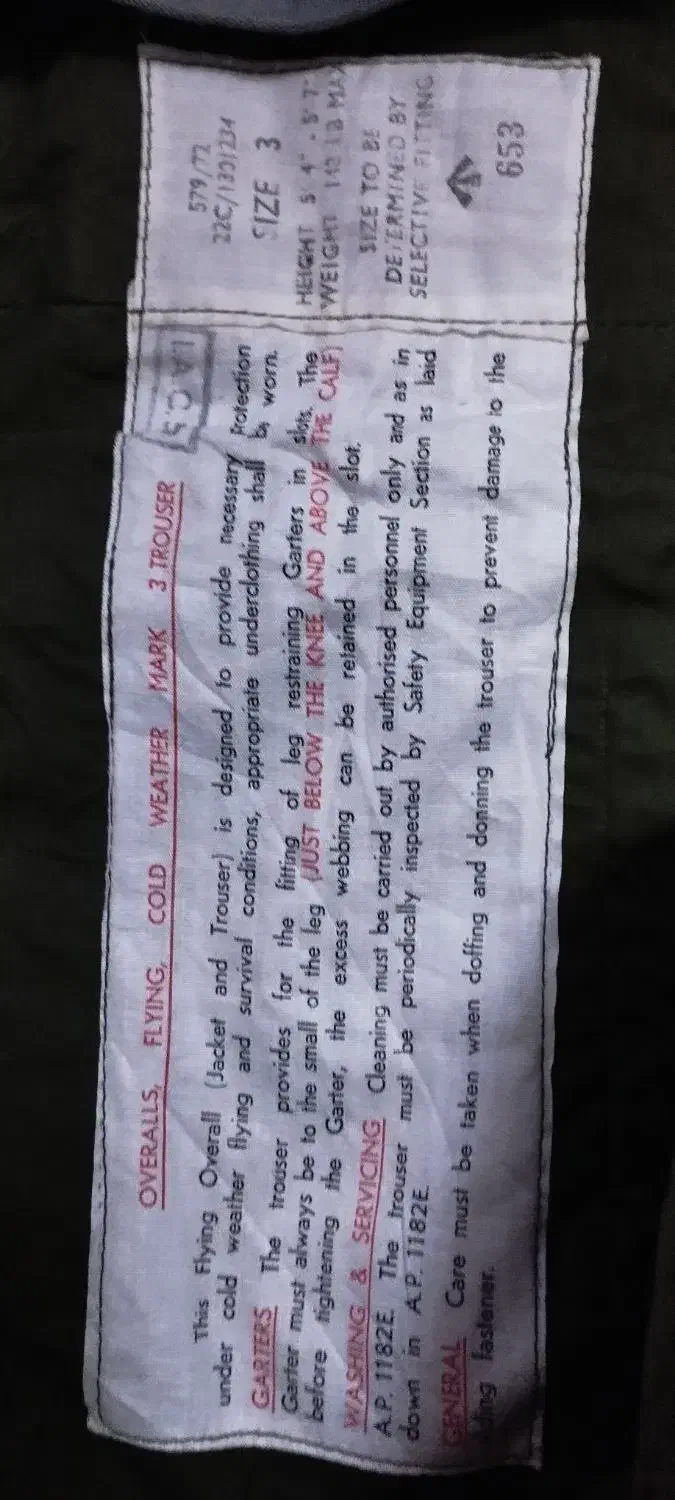 OVERALLS, FLYING, COLD WEATHER MARK 3 TROUSER
This Flying Overall (Jacket and Trouser) is designed to provide necessary Protection
under cold weather flying and survival conditions, appropriate underclothing shall be worn.
GARTERS The trouser provides for the fitting of leg restraining Garters in slots. The
Garter must always be to the small of the leg (JUST BELOW THE KNEE AND ABOVE THE CALF)
before tightening the Garter, the excess webbing can be retained in the slot.
WASHING & SERVICING Cleaning must be carried out by authorised personnel only and as in
A.P. 1182E. The trouser must be periodically inspected by Safety Equipment Section as laid
down in A.P. 1182E.
GENERAL Care must be taken when doffing and donning the trouser to prevent damage to the
fastener.
579/72
22C/1301234
SIZE 3
HEIGHT 5' 4" - 5' 7"
WEIGHT LB MAX
SIZE TO BE
DETERMINED BY
SELECTIVE FITTING
653